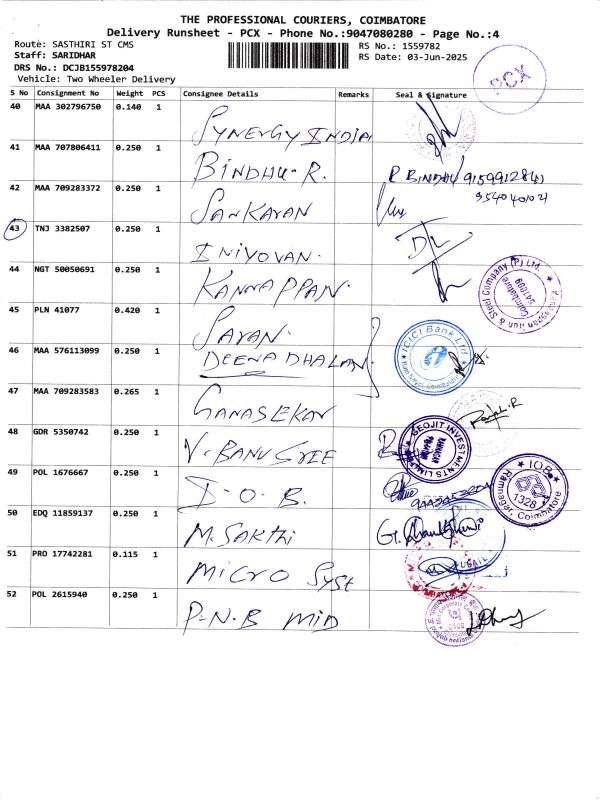 THE PROFESSIONAL COURIERS, COIMBATORE
Delivery Runsheet - PCX - Phone No.:9047080280 - Page No.:4
Route: SASTHIRI ST CMS
RS No.: 1559782
Staff: SARIDHAR
RS Date: 03-Jun-2025
DRS No.: DCJB155978204
Vehicle: Two Wheeler Delivery
PCX
S No Consignment No Weight PCS Consignee Details Remarks Seal & Signature
40 MAA 302796750 0.140 1 SYNERGY INDIA
41 MAA 707806411 0.250 1 BINDHU-R. R BINDHU 9159912841
42 MAA 709283372 0.250 1 SANKARAN 9540 40 021
43 TNJ 3382507 0.250 1 INIYOVAN.
44 NGT 50050691 0.250 1 KANNAPPAN.
Coimbatore 641009
45 PLN 41077 0.420 1 SARAN.
ICICI Bank Ltd
46 MAA 576113099 0.250 1 DEENA DHALAN
47 MAA 709283583 0.265 1 GANASEKAR
48 GDR 5350742 0.250 1 V. BANU SREE
GEOJIT INVESTMENTS LIMITED
49 POL 1676667 0.250 1 I-O-B.
IOB
1328
Ramnagar, Coimbatore
50 EDQ 11859137 0.250 1 M. SAKTHI
51 PRO 17742281 0.115 1 MICRO SYST
52 POL 2615940 0.250 1 P-N-B MID